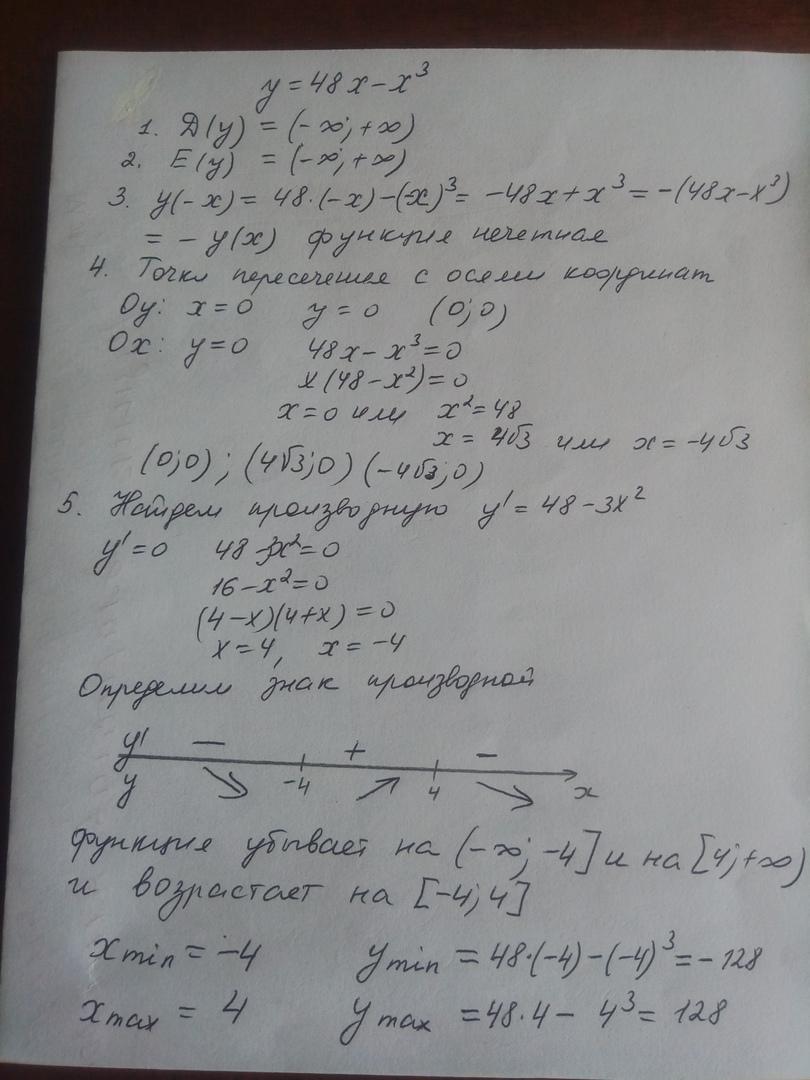 y = 48x - x³
1. D(y) = (-∞; +∞)
2. E(y) = (-∞; +∞)
3. y(-x) = 48·(-x) - (-x)³ = -48x + x³ = -(48x - x³)
= - y(x) функция нечетная
4. Точки пересечения с осями координат
Oy: x = 0 y = 0 (0; 0)
Ox: y = 0 48x - x³ = 0
x(48 - x²) = 0
x = 0 или x² = 48
x = 4√3 или x = -4√3
(0; 0); (4√3; 0) (-4√3; 0)
5. Найдем производную y' = 48 - 3x²
y' = 0 48 - 3x² = 0
16 - x² = 0
(4 - x)(4 + x) = 0
x = 4, x = -4
Определим знак производной
y' − + −
y -4 4 x
функция убывает на (-∞; -4] и на [4; +∞)
и возрастает на [-4; 4]
x min = -4 y min = 48·(-4) - (-4)³ = -128
x max = 4 y max = 48·4 - 4³ = 128